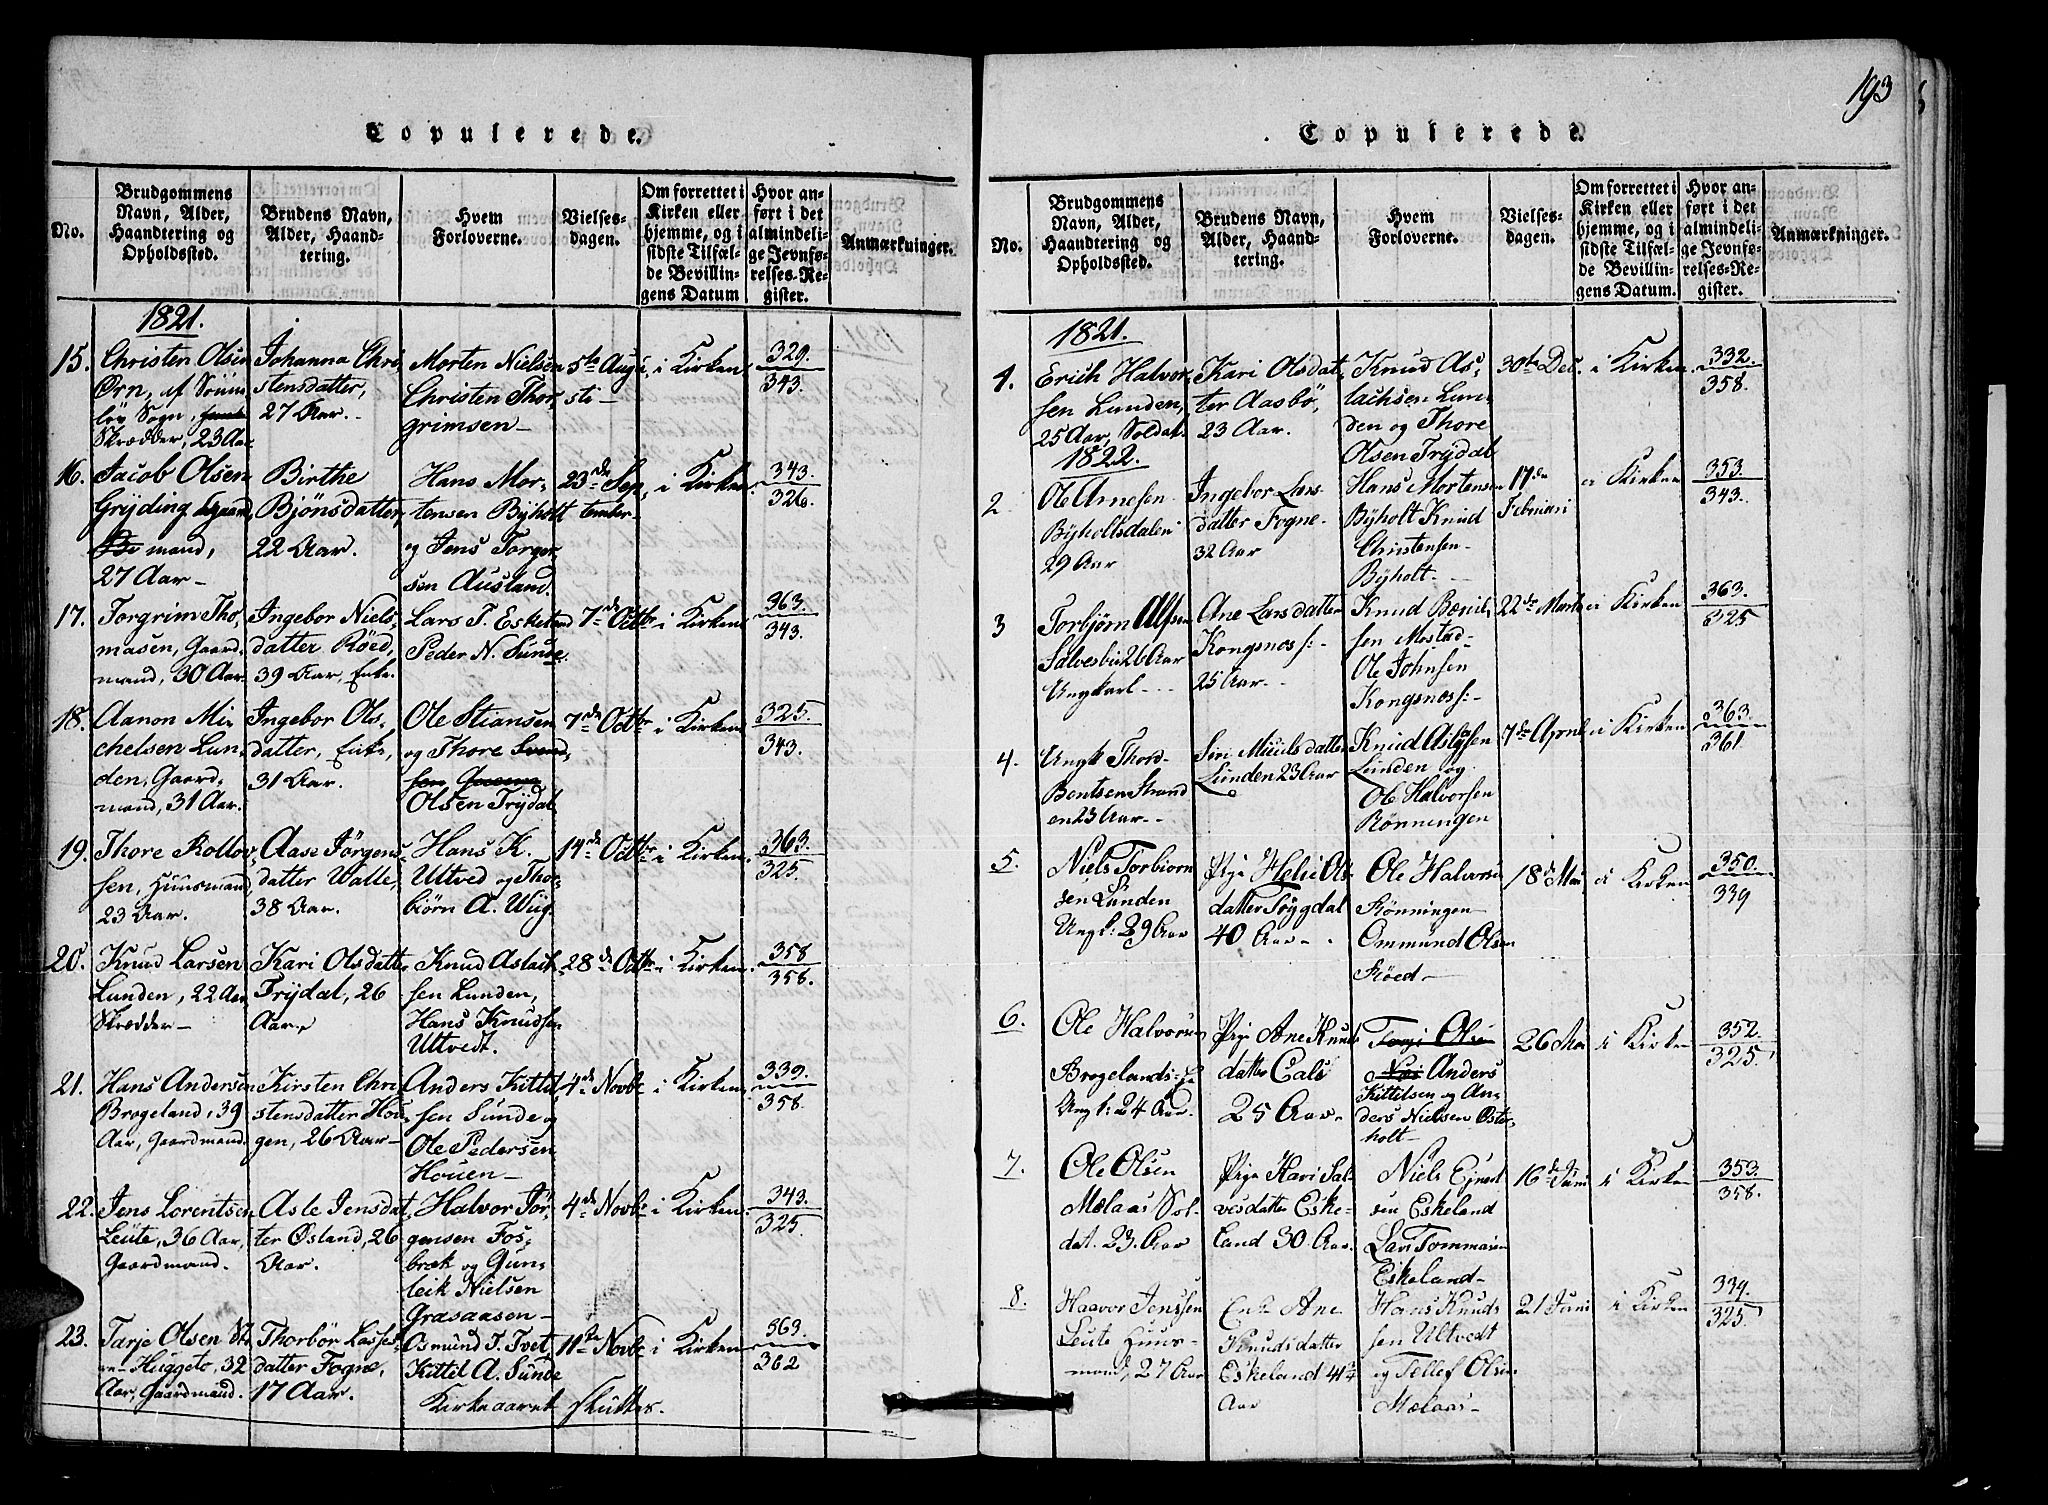 193
Copulerede.
No.
Brudgommens
Navn, Alder,
Haandtering og
Opholdssted.
Brudens Navn,
Alder, Haand-
tering.
Hvem
Forloverne.
Vielses-
dagen.
Om forrettet i
Kirken eller
hjemme, og i
sidste Tilfæl-
de Bevillin-
gens Datum
Hvor an-
ført i det
almindeli-
ge Jevnfø-
relses-Re-
gister.
Anmærkninger.
1821.
15.
Christen Olsen
Ørn, af
Sogn,
Skrædder, 23 Aar
Johanna Chri-
stensdatter,
27 Aar.
Morten Nielsen
Christen Thor-
grimsen
5te Augu-
sti
i Kirken
329.
343.
16.
Jacob Olsen
Gryding Gaard
mand,
27 Aar
Birthe
Bjönsdatter,
22 Aar.
Hans Mor-
tensen Byholt
og Jens Torger-
sen Ausland.
23de Sep-
tember
i Kirken
343.
326.
17.
Torgrim Tho-
masen, Gaard-
mand, 30 Aar.
Ingebor Niels-
datter Röed,
39 Aar, Enke.
Lars T. Eskeland
Peder N. Sunde.
7de Octbr
i Kirken
363.
343.
18.
Aanon Mi-
chelsen Lun-
den, Gaard-
mand, 31 Aar.
Ingebor Ols-
datter, Enke,
31 Aar.
Ole Stiansen
og Thore Svend-
sen
Olsen Trydal
7de Octbr
i Kirken
325.
343.
19.
Thore Rollov-
sen, Huusmand
23 Aar.
Aase Jörgens-
datter Walle,
38 Aar.
Hans K.
Ultved og Thor-
biörn A. Wiig.
14de Octbr
i Kirken
363.
325.
20.
Knud Larsen
Lunden, 22 Aar,
Skrædder
Kari Olsdatter
Trydal, 26
Aar.
Knud Aslack-
sen Lunden,
Hans Knudsen
Ultvedt.
28de Octbr
i Kirken
358
358.
21.
Hans Andersen
Brogeland, 39
Aar, Gaardmand.
Kirsten Chri-
stensdatter Hou-
gen, 26 Aar
Anders Kittil-
sen Sunde og
Ole Pedersen
Houen
4de Novbr
i Kirken
339.
358.
22.
Jens Lorentsen
Leute, 36 Aar,
Gaardmand.
Asle Jensdat-
ter Østand, 26
Aar.
Halvor Jör-
gensen Fos-
bræk og Gun-
leik Nielsen
Grasaasen
4de Novbr
i Kirken
343.
325
23.
Tarje Olsen
Huggeto, 32
Aar, Gaardmand.
Thorbör Lasses-
datter Fogne,
17 Aar.
Osmund T. Tvet,
Kittil A. Sunde
11te Novbr
i Kirken
363.
362
Kirkeaaret sluttes.
Copulerede.
No.
Brudgommens
Navn, Alder,
Haandtering og
Opholdssted.
Brudens Navn,
Alder, Haand-
tering.
Hvem
Forloverne.
Vielses-
dagen.
Om forrettet i
Kirken eller
hjemme, og i
sidste Tilfæl-
de Bevillin-
gens Datum.
Hvor an-
ført i det
almindeli-
ge Jevnfø-
relses-Re-
gister.
Anmærkninger.
1821.
1.
Erich Halvor-
sen Lunden,
25 Aar, Soldat.
Kari Olsdat-
ter Aasbö,
23 Aar.
Knud As-
lachsen Lun-
den og Thore
Olsen Trydal
30te Dec.
i Kirken
332.
358.
1822.
2
Ole Arnesen
Byholtsdalen
29 Aar
Ingebor Lars-
datter Fogne
32 Aar
Hans Mortensen
Byholt Knud
Christensen
Byholt.
17de
Februari
i Kirken
353.
343.
3
Torbjørn Alfsen
26 Aar
Ungkarl
Ane Larsdatter
Kongsnoss:
25 Aar
Knud
sen Mostad
Ole Johnsen
Kongsnoss:
22de Marts
i Kirken
363.
325
4.
Ungk Thord
Bentsen Strand
en 23 Aar
Siri datter
Lunden 23 Aar
Knud Aslaksen
Lunden og
Ole Halvorsen
Rønningen
7de April
i Kirken
363.
361
5.
Niels Torbiorn
sen Lunden
Ungk: 29 Aar
Pige Helie Ols
datter Trygdal
40 Aar
Ole Halvorsen
Rönningen
Ommund Olsen
Röed
18de Mai
i Kirken
350.
339
6.
Ole Halvorsen
Brogelands
Ungk: 24 Aar
Pige Ane Knuds
datter
25 Aar
Terje Olsen
Anders
Kittilsen og An-
ders Nielsen Oster-
holt
26 Mai
i Kirken
352.
325
7.
Ole Olsen
Mælaas Sol-
dat. 23. Aar
Pige Kari Sal-
vesdatter Eske-
land 30 Aar.
Niels Ejved
sen Eskeland
Lars Tommasen
Eskeland
16de Juni
i Kirken
353.
358.
8.
Haavor Jenssen
Leute Huus-
mand, 27 Aar
Enke Ane
Knudsdatter
Eskeland 41
Aar
Hans Knud-
sen Ultvedt
og Tellef Olsen
Mælaas
21 Juni
i Kirken
339.
325.